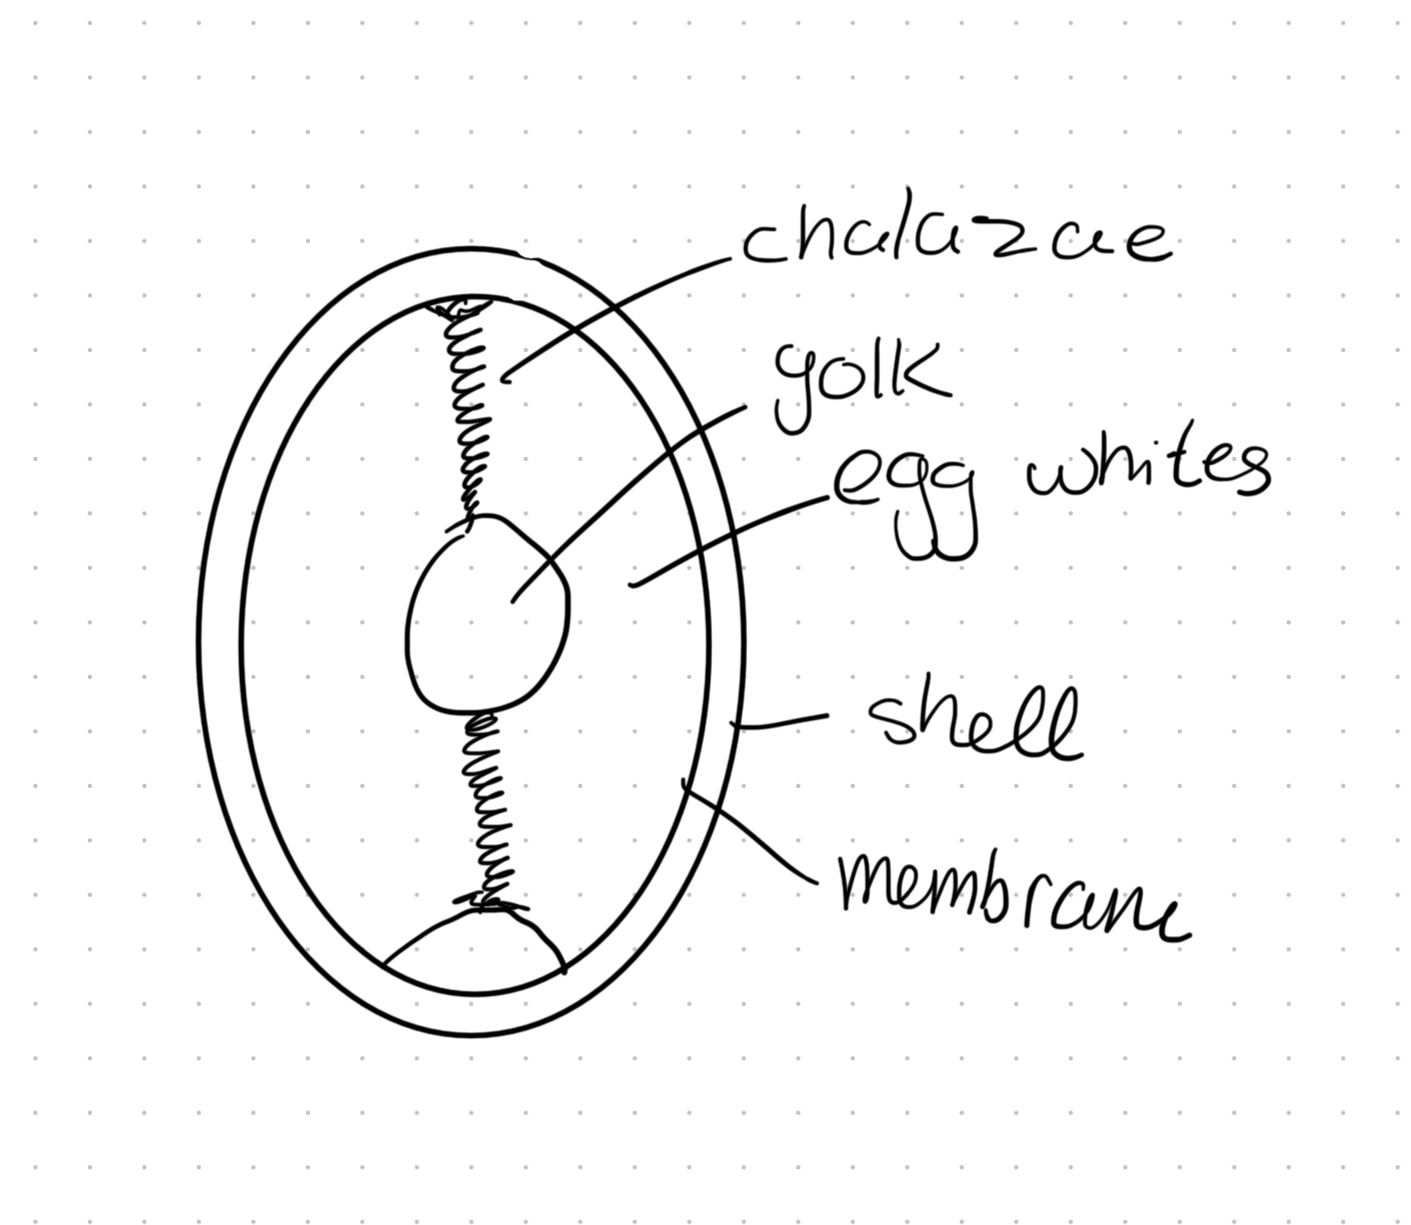 chalazae
yolk
egg whites
shell
membrane